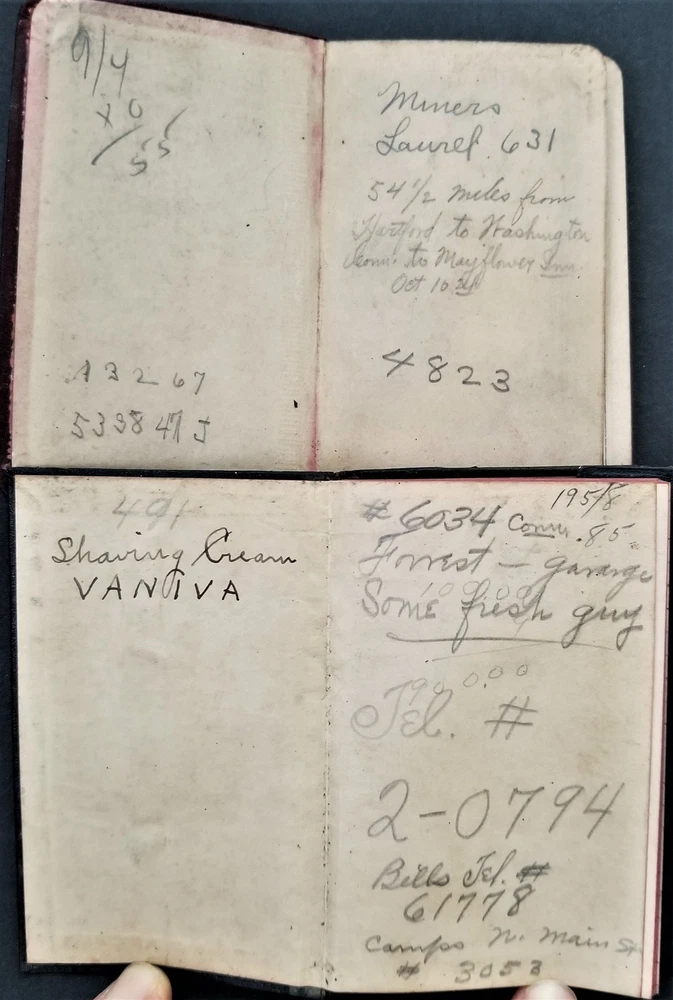 9/4
x 0
/55/
A 3 2 67
533847 J
Miners
Laurel. 631
54 1/2 miles from
Hartford to Washington
Conn. to Mayflower Inn.
Oct 10
4823
491
Shaving Cream
VANIVA
195/8
#6034 Conn. .85
Forrest — garage
Some fresh guy
Tel. #
2-0794
Bills Tel. #
61778
Camps N. Main St
# 3053